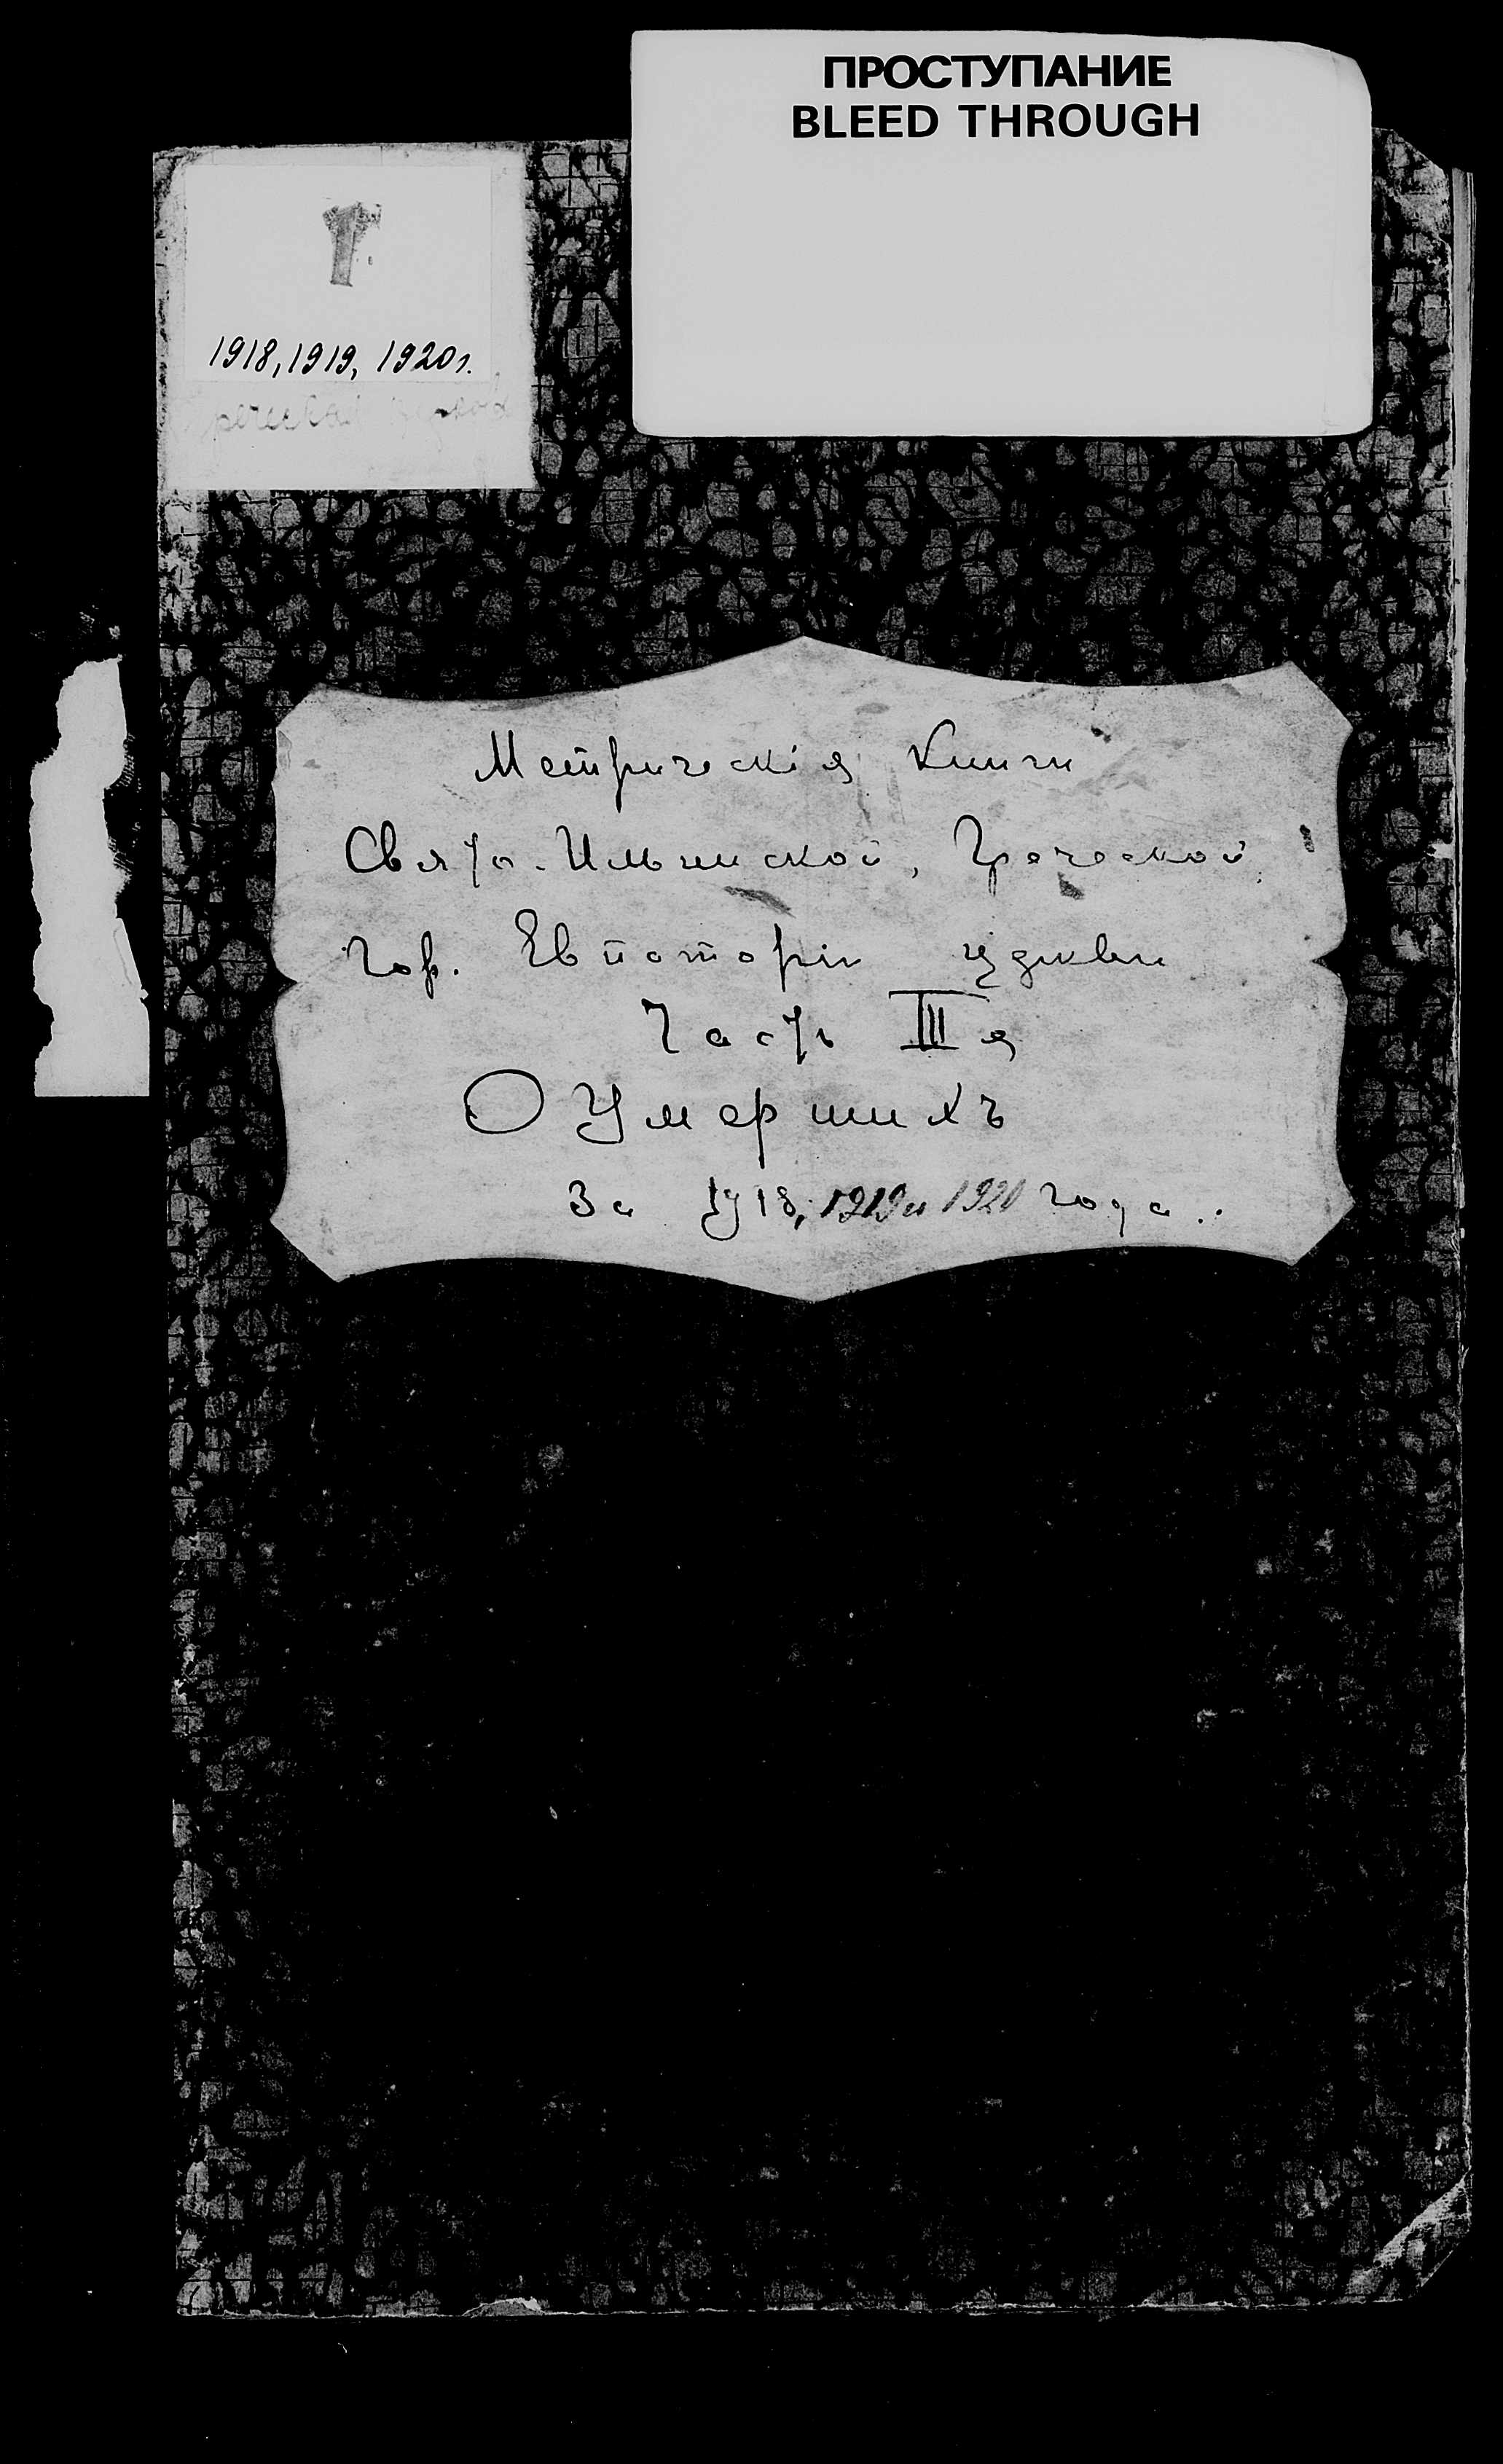 ПРОСТУПАНИЕ
BLEED THROUGH
1918, 1919, 1920 г.
Метрическія Книги
Свято-Ильинской, Греческой,
Гор. Евпаторіи церкви
Часть III я
О Умершихъ
За 1918, 1919 и 1920 года.